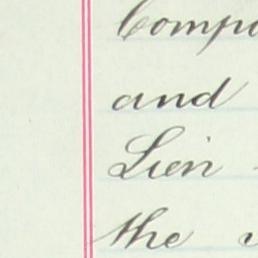 Compa
and
Lien
the